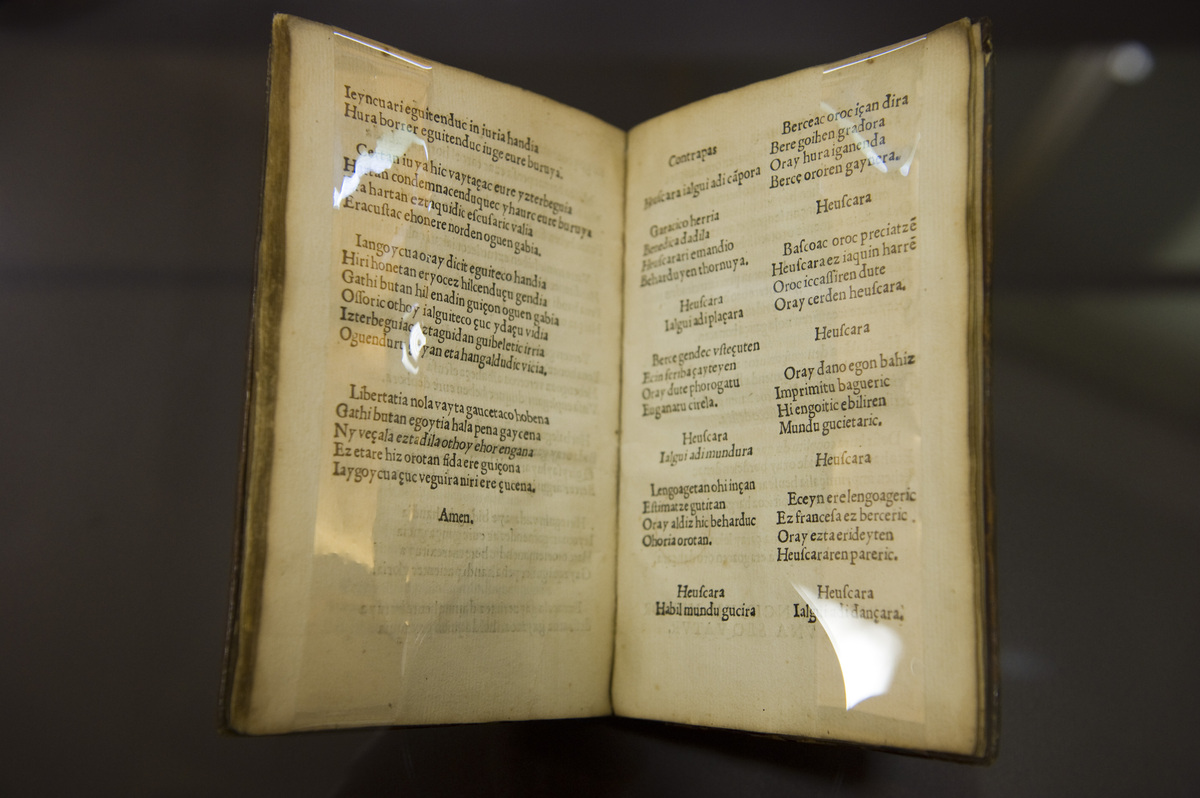 Ieyncuari eguitenduc in iuria handia
Hura borrer eguitenduc iuge eure buruya.
iu ya hic vaytaçac eure yzterbeguia
condemnacenduquec yhaurc eure buruya
hartan ezt aquidic escusaric valia
Eracustac ehonere norden oguen gabia.
Iangoycua oray dicit eguiteco handia
Hiri honetan eryocez hilcenduçu gendia
Gathi butan hil enadin guiçon oguen gabia
Oſſoric othoy ialguiteco çuc ydaçu vidia
Izterbeguiac eztaguidan guibeletic irria
yan eta hangaldudic vicia.
Libertatia nola vayta gaucetaco hobena
Gathi butan egoytia hala pena gaycena
Ny veçala eztadila othoy ehor engana
Ez etare hiz orotan fida ere guiçona
Iaygoycua çuc veguira niri ere çucena.
Amen.
Contrapas
Heuſcara ialgui adi cãpora
Garacico herria
Benedica dadila
Heuſcarari emandio
Beharduyen thornuya.
Heuſcara
Ialgui adi plaçara
Berce gendec vſteçuten
Ecin ſcriba çayteyen
Oray dute phorogatu
Euganatu cirela.
Heuſcara
Ialgui adi mundura
Lengoagetan ohi inçan
Eſtimatze gutitan
Oray aldiz hic beharduc
Ohoria orotan.
Heuſcara
Habil mundu gucira
Berceac oroc içan dira
Bere goihen gradora
Oray hura iganenda
Berce ororen gaynera.
Heuſcara
Baſcoac oroc preciatzẽ
Heuſcara ez iaquin harrẽ
Oroc iccaſſiren dute
Oray cerden heuſcara.
Heuſcara
Oray dano egon bahiz
Imprimitu bagueric
Hi engoitic ebiliren
Mundu gucietaric.
Heuſcara
Eceyn ere lengoageric
Ez franceſa ez berceric
Oray ezta erideyten
Heuſcararen pareric.
Heuſcara
Ialgui adi dançara.